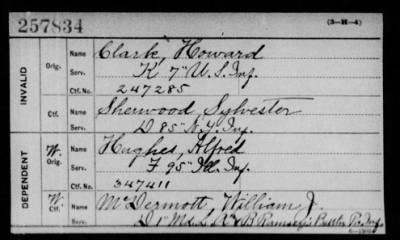 257834 (3-H-4)
INVALID
Orig. Name Clark, Howard
Serv. K 7" U.S. Inf.
Ctf. No. 247285
Ctf. Name Sherwood, Sylvester
Serv. D 85" N.Y. Inf.
DEPENDENT
W. Orig. Name Hughes, Alfred
Serv. F 95" Ill. Inf.
Ctf. No. 347411
W. Ctf. Name McDermott, William J.
Serv. D 1" Md. L. A. & B